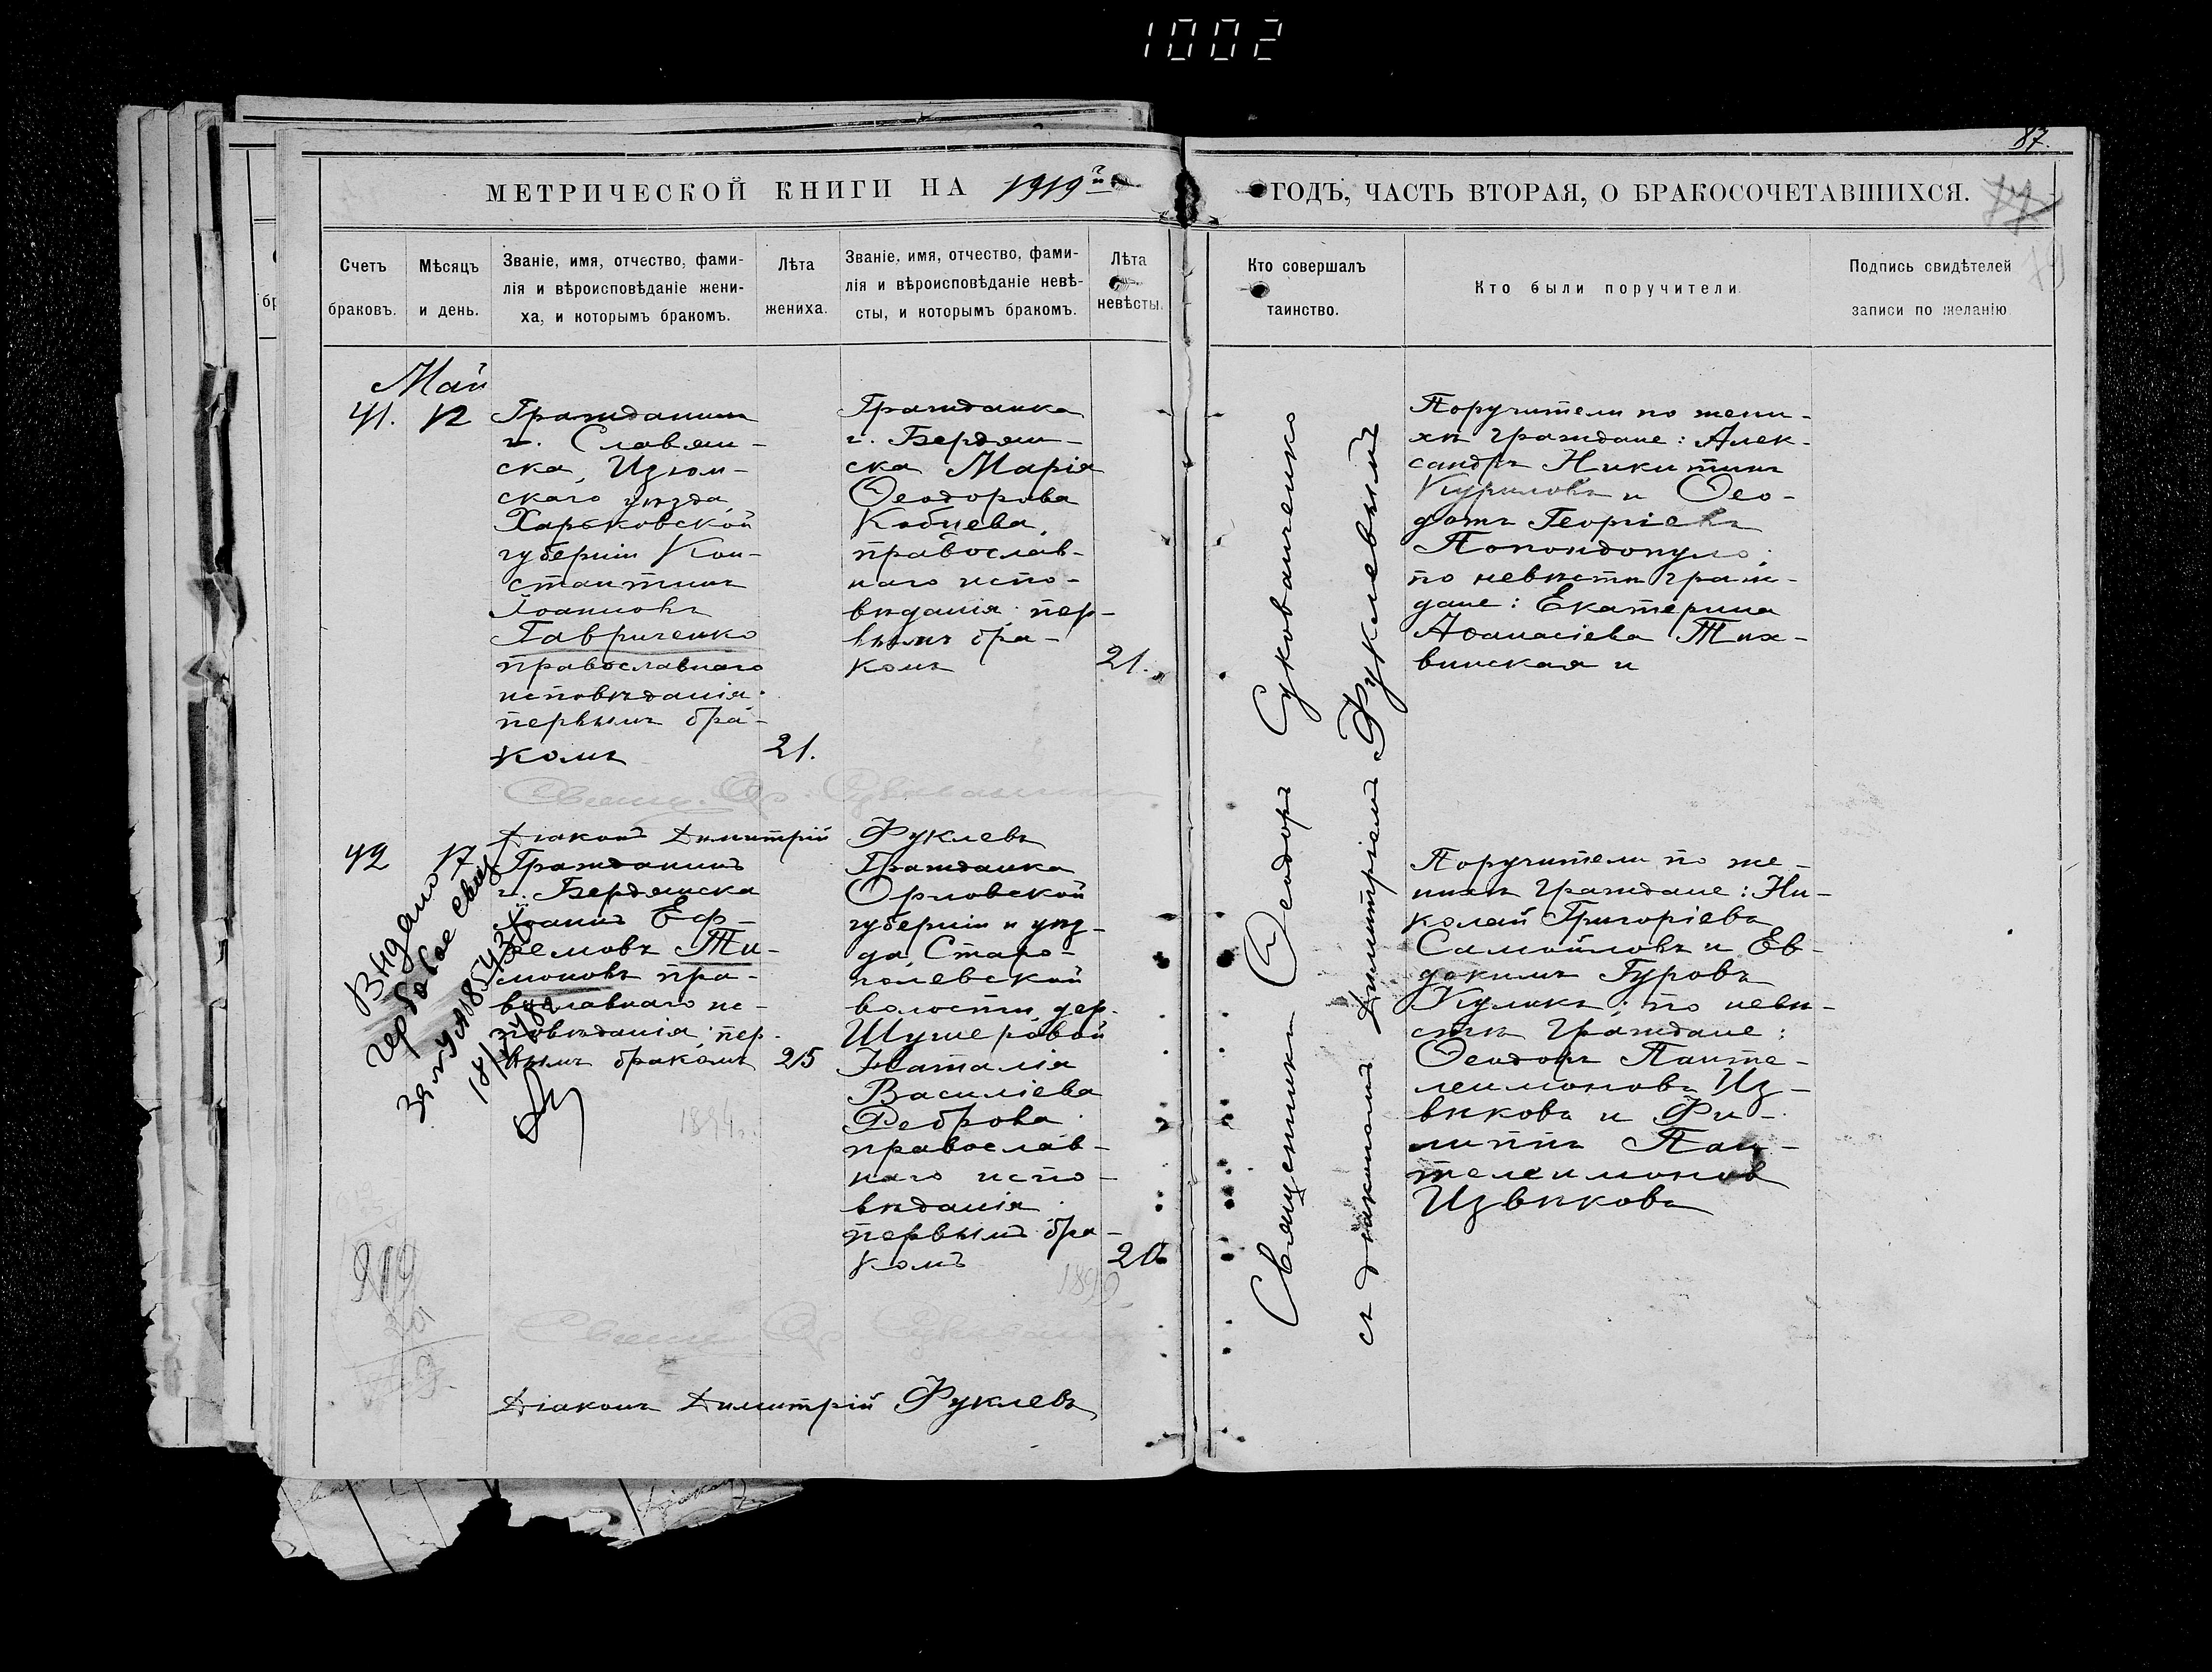 1002
87.
МЕТРИЧЕСКОЙ КНИГИ НА 1919й
ГОДЪ, ЧАСТЬ ВТОРАЯ, О БРАКОСОЧЕТАВШИХСЯ.
Счетъ
браковъ.
Мѣсяцъ
и день.
Званіе, имя, отчество, фами-
лія и вѣроисповѣданіе жени-
ха, и которымъ бракомъ.
Лѣта
жениха.
Званіе, имя, отчество, фами-
лія и вѣроисповѣданіе невѣ-
сты, и которымъ бракомъ.
Лѣта
невѣсты.
Кто совершалъ
таинство.
Кто были поручители.
Подпись свидѣтелей
записи по желанію
Май
41. 12
Гражданинъ
г. Славян-
ска, Изюм-
скаго уѣзда,
Харьковской
губерніи Кон-
стантинъ
Іоанновъ
Гавриченко
православнаго
исповѣданія;
первымъ бра-
комъ
21.
Гражданка
г. Бердян-
ска Марія
Ѳеодорова
Кобцева,
православ-
наго испо-
вѣданія; пер-
вымъ бра-
комъ
21.
Священникъ Ѳеодоръ Суковаченко
съ діакономъ Димитріемъ Фуклевымъ
Поручители по жени-
хѣ граждане: Алек-
сандръ Никитинъ
Куриловъ и Ѳео-
дотъ Георгіевъ
Попондопуло;
по невѣстѣ граж-
дане: Екатерина
Аѳанасіева Тих-
винская и
Діаконъ Димитрій Фуклевъ
42 17
Гражданинъ
г. Бердянска
Іоаннъ Еф-
ремовъ Ти-
моновъ пра-
вславнаго ис-
повѣданія; пер-
вымъ бракомъ
25
1894г.
Гражданка
Орловской
губерніи и уѣз-
да, Старо-
полевской
волости, дер.
Шушеровой
Наталія
Василіева
Реброва
православ-
наго испо-
вѣданія
первымъ бра-
комъ
20
1899
Поручители по же-
нихѣ граждане: Ни-
колай Григоріевъ
Самойловъ и Ев-
докимъ Гуровъ
Куликъ; по невѣ-
стѣ граждане:
Ѳеодоръ Панте-
леимоновъ Из-
вѣковъ и Фи-
липпъ Пан-
телеимоновъ
Извѣковъ
Видано
гербовое свид
за № УЯ 185431
Діаконъ Димитрій Фуклевъ